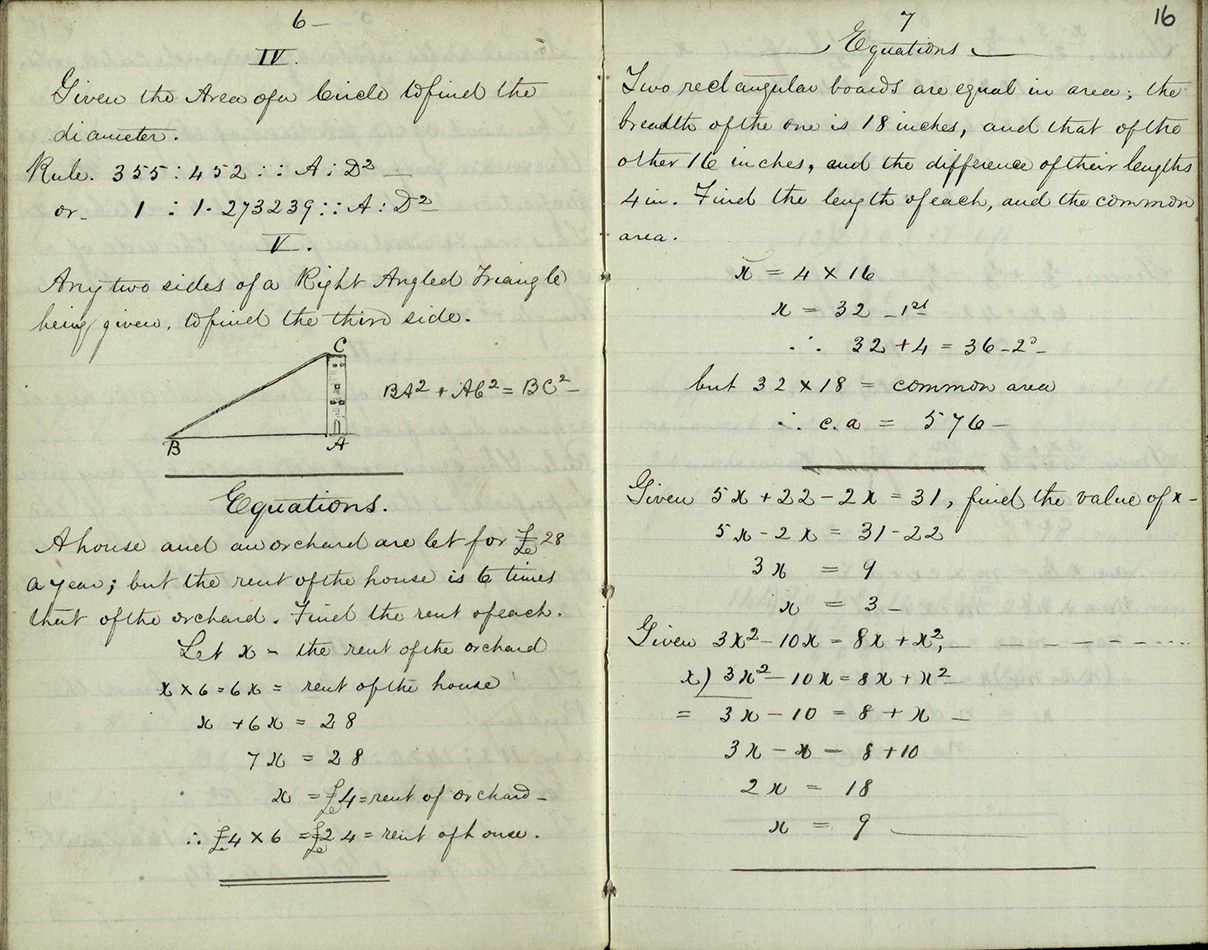 6-
IV.
Given the Area of a Circle to find the
diameter.
Rule. 355 : 452 :: A : D²
or. 1 : 1.273239 :: A : D²
V.
Any two sides of a Right Angled Triangle
being given, to find the third side.
C
BA² + AC² = BC²-
B A
Equations.
A house and an orchard are let for £28
a year; but the rent of the house is 6 times
that of the orchard. Find the rent of each.
Let x = the rent of the orchard
x × 6 = 6x = rent of the house
x + 6x = 28
7x = 28
x = £4 = rent of orchard-
∴ £4 × 6 = £24 = rent of house.
16
7
Equations
Two rectangular boards are equal in area; the
breadth of the one is 18 inches, and that of the
other 16 inches, and the difference of their lengths
4 in. Find the length of each, and the common
area.
x = 4 × 16
x = 32 - 1st
∴ 32 + 4 = 36 - 2d -
but 32 × 18 = common area
∴ c.a = 576 -
Given 5x + 22 - 2x = 31, find the value of x -
5x - 2x = 31 - 22
3x = 9
x = 3 -
Given 3x² - 10x = 8x + x², - - - - - - -
x) 3x² - 10x = 8x + x²
= 3x - 10 = 8 + x -
3x - x = 8 + 10
2x = 18
x = 9